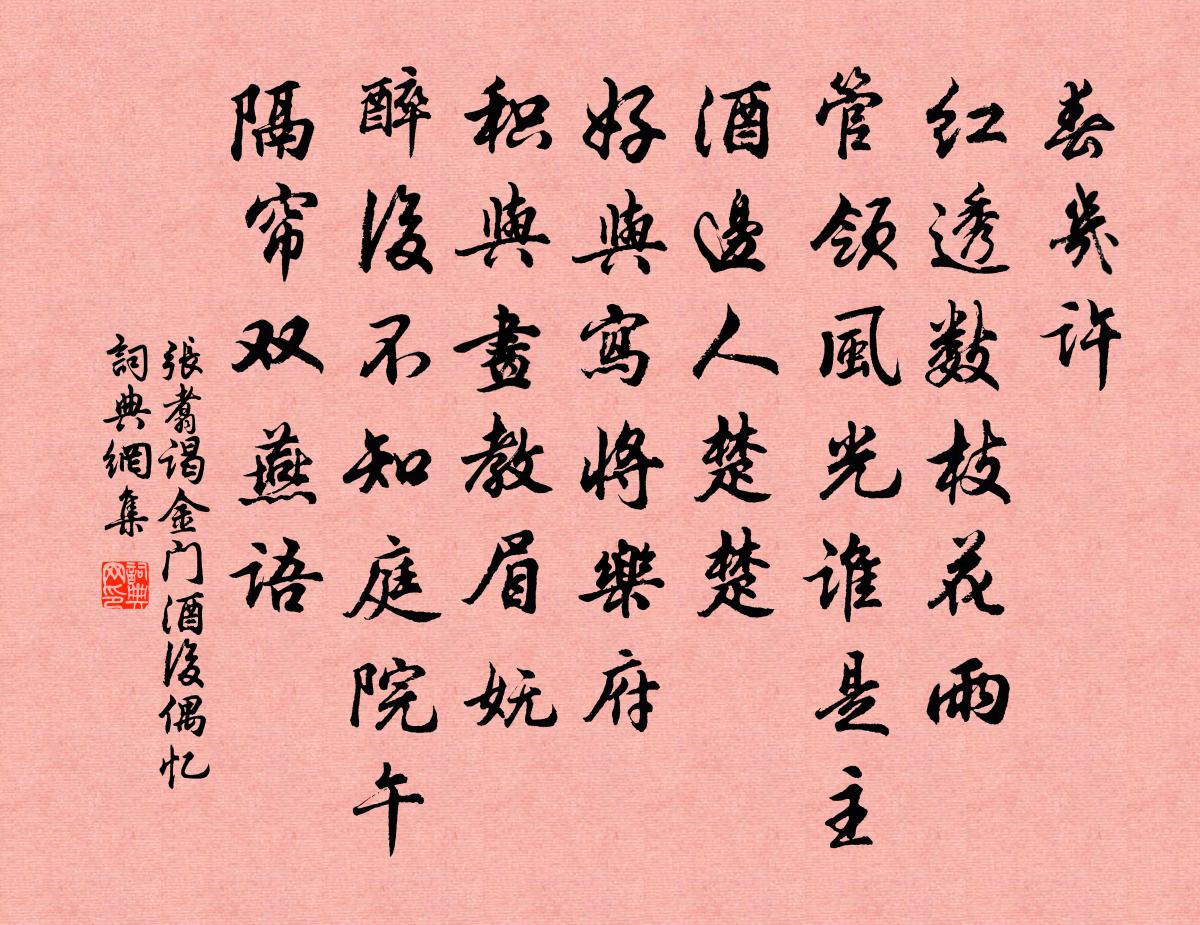 春幾许
红透数枝花雨
管领風光谁是主
酒邊人楚楚
好與寫将樂府
积與畫教眉妩
醉後不知庭院午
隔帘双燕语
張翥谒金门 酒後偶忆
詞典網集
詞典网印